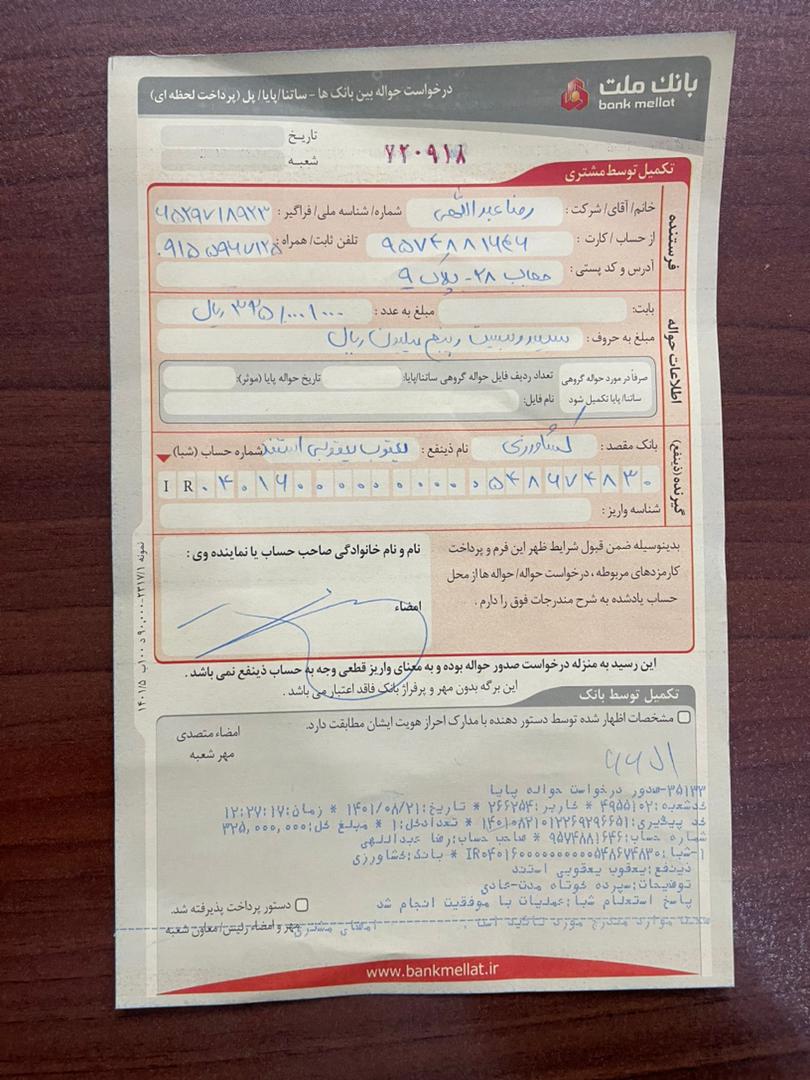 بانک ملت
bank mellat
درخواست حواله بین بانک ها - ساتنا/پایا/پل (پرداخت لحظه ای)
تاریخ
شعبه
۷۲۰۹۱۸
تکمیل توسط مشتری
فرستنده
خانم/آقای/شرکت: رضا عبداللهی شماره/شناسه ملی/فراگیر:
از حساب/کارت: ۹۵۷۴۸۸۱۶۴۶ تلفن ثابت/همراه: ۰۹۱۵۵۹۶۷۱۲۵
آدرس و کد پستی: ۲۸- پلاک ۹
اطلاعات حواله
بابت: مبلغ به عدد: ۳۲۵/۰۰۰/۰۰۰ ریال
مبلغ به حروف: سیصد و بیست و پنج میلیون ریال
صرفاً در مورد حواله گروهی ساتنا/پایا تکمیل شود
تعداد ردیف فایل حواله گروهی ساتنا/پایا: تاریخ حواله پایا (موثر):
نام فایل:
گیرنده (ذینفع)
بانک مقصد: کشاورزی نام ذینفع: یعقوب یعقوبی استند شماره حساب (شبا)
IR ۰۴۰۱۶۰۰۰۰۰۰۰۰۰۰۰۵۴۸۶۷۴۸۳۰
شناسه واریز:
بدینوسیله ضمن قبول شرایط ظهر این فرم و پرداخت
کارمزدهای مربوطه، درخواست حواله/حواله ها از محل
حساب یادشده به شرح مندرجات فوق را دارم.
نام و نام خانوادگی صاحب حساب یا نماینده وی:
امضاء
این رسید به منزله درخواست صدور حواله بوده و به معنای واریز قطعی وجه به حساب ذینفع نمی باشد.
این برگه بدون مهر و پرفراژ بانک فاقد اعتبار می باشد.
تکمیل توسط بانک
مشخصات اظهار شده توسط دستور دهنده با مدارک احراز هویت ایشان مطابقت دارد.
امضاء متصدی
مهر شعبه
۳۵۱۳۳-صدور درخواست حواله پایا
کدشعبه:۴۹۵۵۱۰۲ * کاربر:۲۶۶۲۵۴ * تاریخ:۱۴۰۱/۰۸/۲۱ * زمان:۱۲:۲۷:۱۷
کد پیگیری:۱۴۰۱۰۸۲۱۰۱۲۲۶۹۲۹۶۶۵۱ * تعدادکل:۱ * مبلغ کل:۳۲۵,۰۰۰,۰۰۰
شماره حساب:۹۵۷۴۸۸۱۶۴۶ * صاحب حساب:رضا عبداللهی
۱-شبا:IR۰۴۰۱۶۰۰۰۰۰۰۰۰۰۰۰۵۴۸۶۷۴۸۳۰ * بانک:کشاورزی
ذینفع:یعقوب یعقوبی استند
توضیحات:سپرده کوتاه مدت-عادی
پاسخ استعلام شبا:عملیات با موفقیت انجام شد
صحت موارد مندرج مورد تائید است. امضای مشتری
دستور پرداخت پذیرفته شد.
مهر و امضاء رئیس/معاون شعبه
www.bankmellat.ir